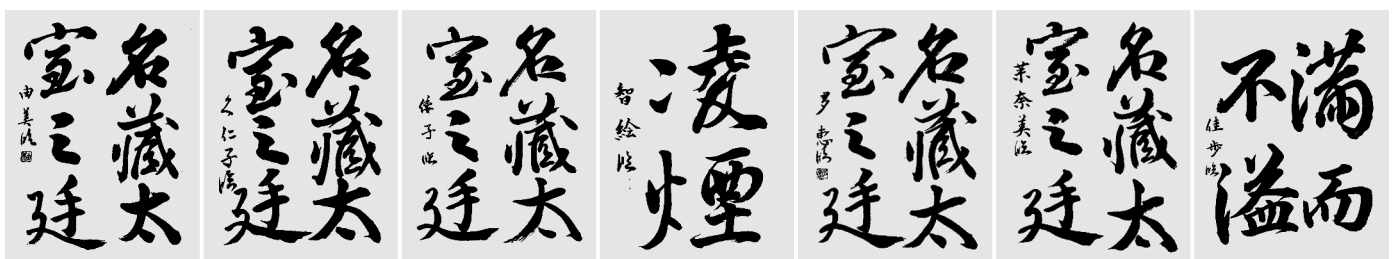 名藏太
室之廷
由美臨
名藏太
室之廷
久仁子臨
名藏太
室之廷
子臨
凌
煙
智絵臨
名藏太
室之廷
臨
名藏太
室之廷
奈美臨
満而
不溢
佳歩臨